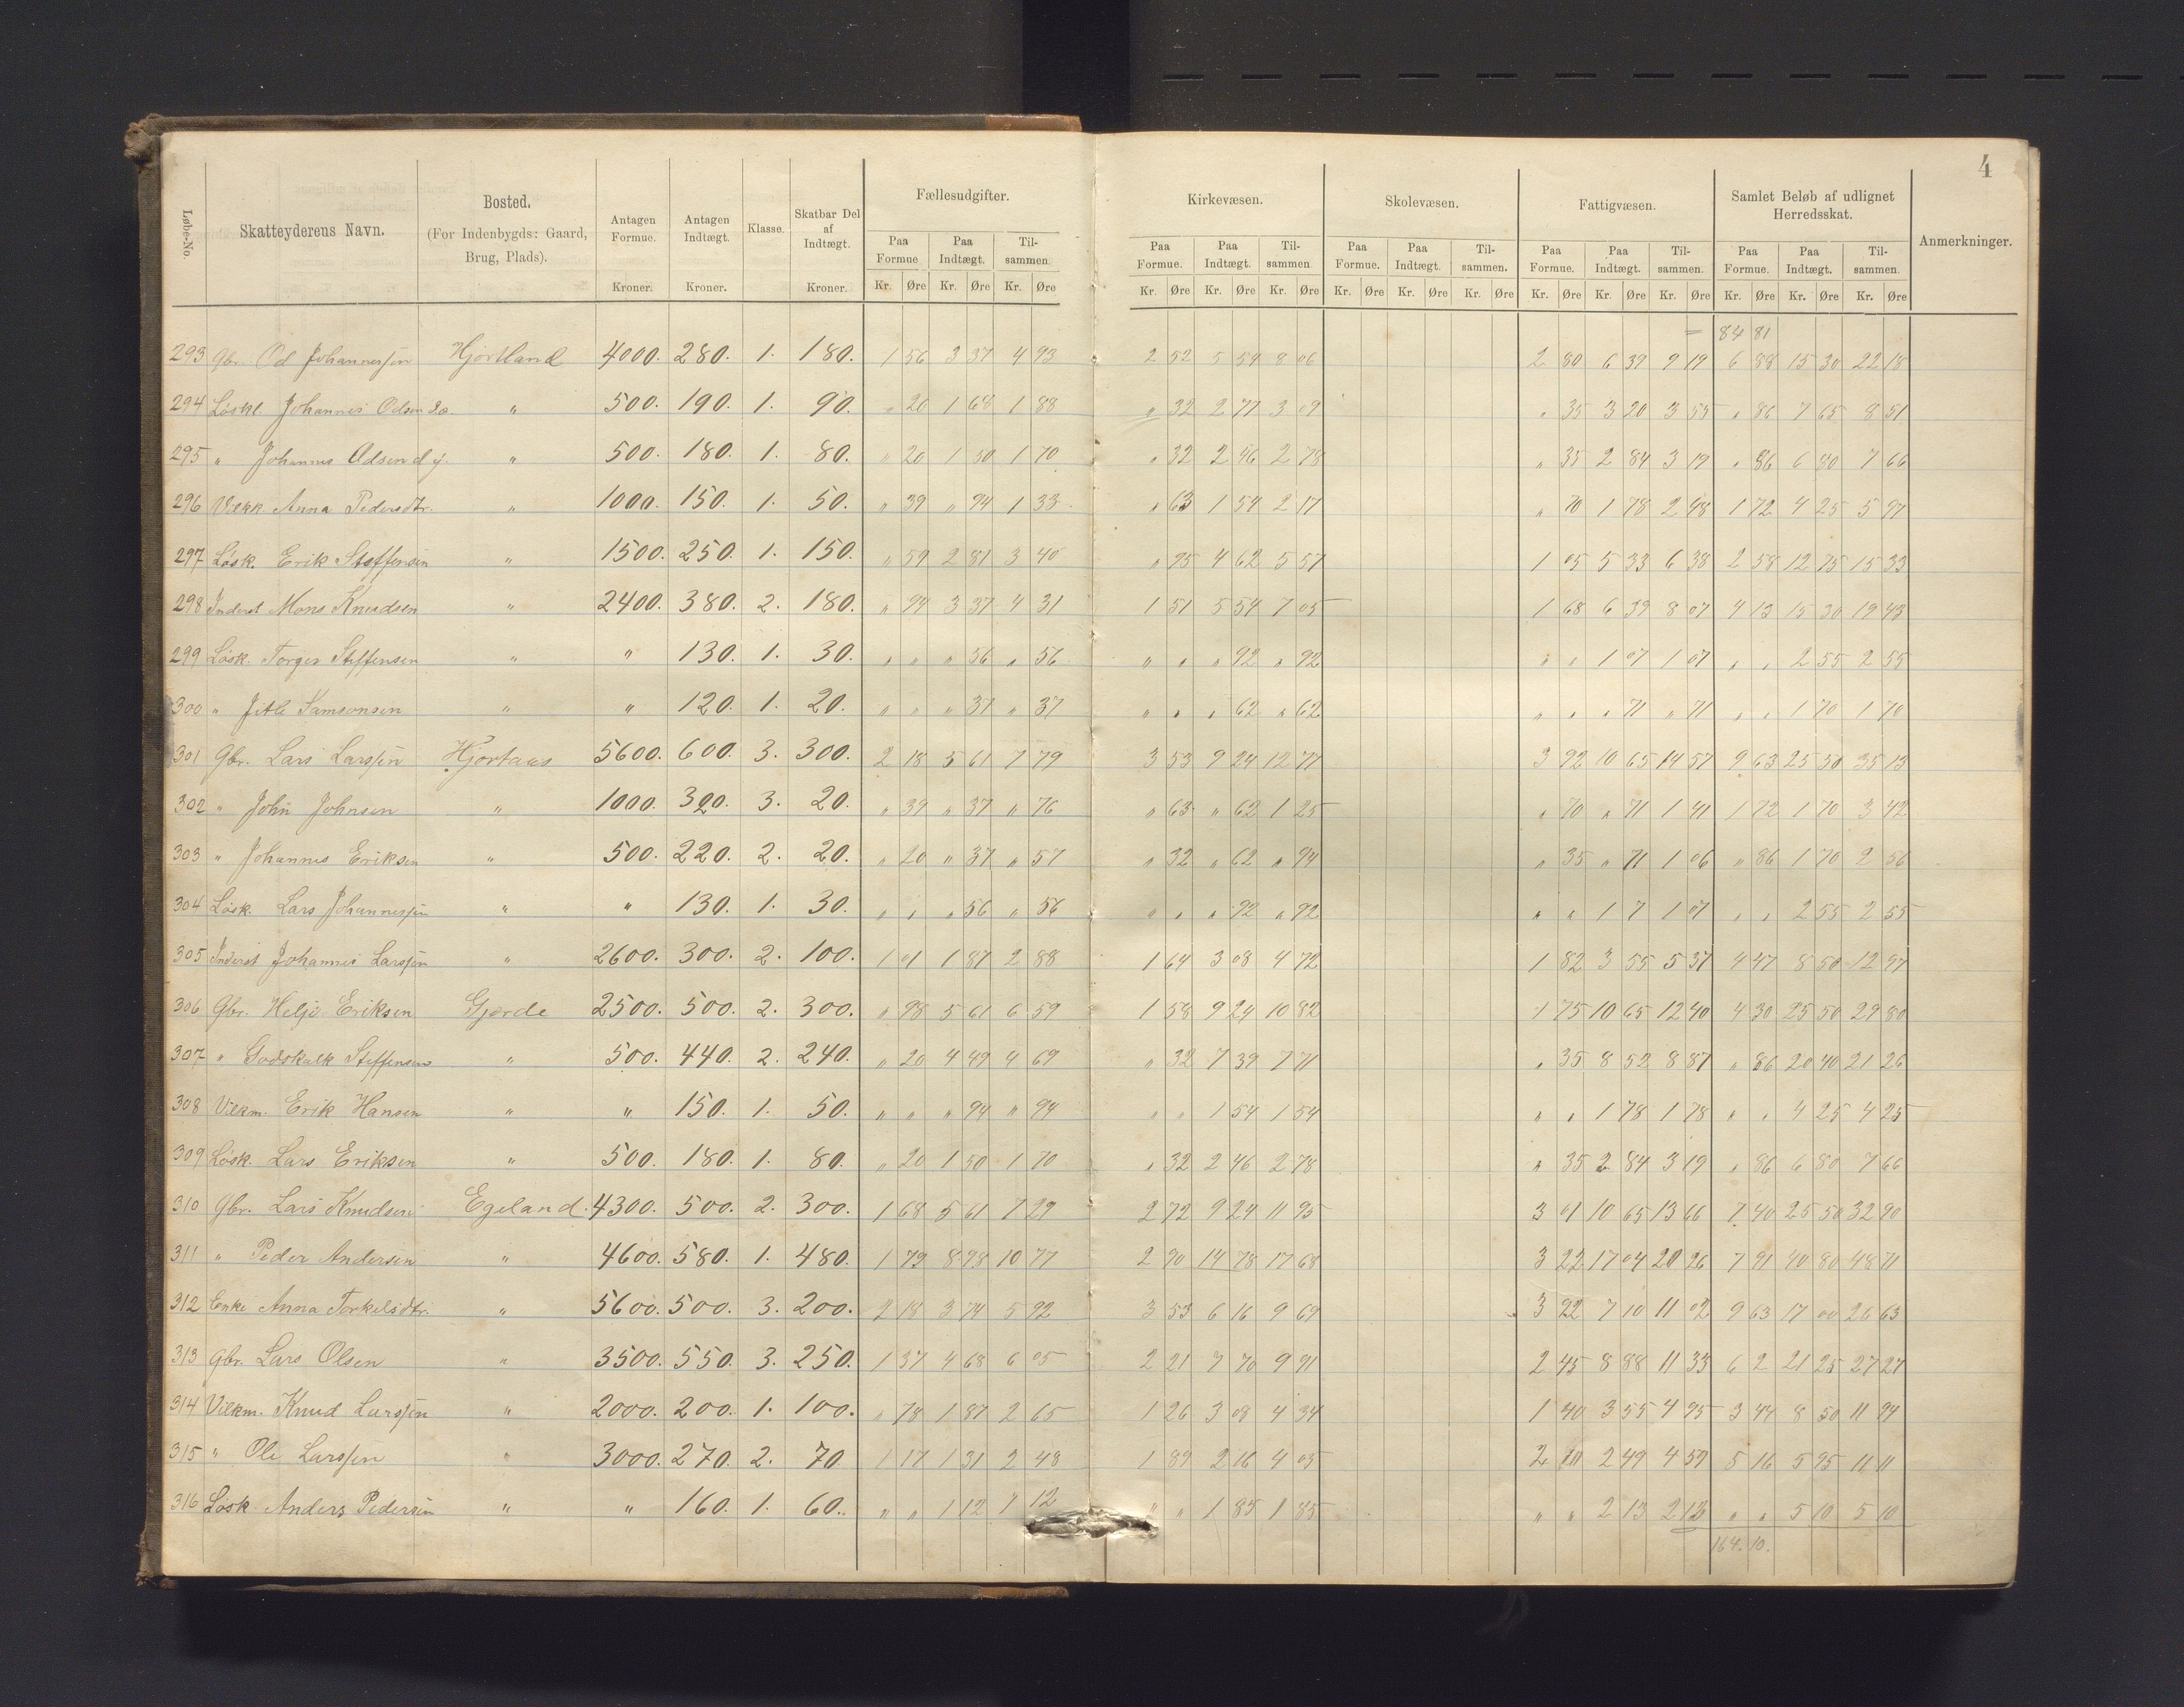 4
Løbe-No. Skatteyderens Navn. Bosted. (For Indenbygds: Gaard, Brug, Plads). Antagen Formue. Kroner. Antagen Indtægt. Kroner. Klasse. Skatbar Del af Indtægt. Kroner. Fællesudgifter. Kirkevæsen. Skolevæsen. Fattigvæsen. Samlet Beløb af udlignet Herredsskat. Anmerkninger.
Paa Formue Paa Indtægt. Til-sammen Paa Formue. Paa Indtægt. Til-sammen Paa Formue. Paa Indtægt. Til-sammen. Paa Formue. Paa Indtægt. Til-sammen. Paa Formue. Paa Indtægt. Til-sammen.
Kr. Øre Kr. Øre Kr. Øre Kr. Øre Kr. Øre Kr. Øre Kr. Øre Kr. Øre Kr. Øre Kr. Øre Kr. Øre Kr. Øre Kr. Øre Kr. Øre Kr. Øre
= 84 81
293 Gbr. Od Johannessen Hjortland 4000. 280. 1. 180. 1 56 3 37 4 93 2 52 5 54 8 06 2 80 6 39 9 19 6 88 15 30 22 18
294 Løskl. Johannes Odsen " 500. 190. 1. 90. " 20 1 68 1 88 " 32 2 77 3 09 " 35 3 20 3 55 " 86 7 65 8 51
295 " Johannes Odsen d y. " 500. 180. 1. 80. " 20 1 50 1 70 " 32 2 46 2 78 " 35 2 84 3 19 " 86 6 80 7 66
296 Vilkk Anna Pedersdtr. " 1000. 150. 1. 50. " 39 " 94 1 33 " 63 1 54 2 17 " 70 1 78 2 48 1 72 4 25 5 97
297 Løsk. Erik Steffensen " 1500. 250. 1. 150. " 59 2 81 3 40 " 95 4 62 5 57 1 05 5 33 6 38 2 58 12 75 15 33
298 Inderst Mons Knudsen " 2400. 380. 2. 180. " 94 3 37 4 31 1 51 5 54 7 05 1 68 6 39 8 07 4 13 15 30 19 43
299 Løsk. Torger Steffensen " " 130. 1. 30. " " " 56 " 56 " " " 92 " 92 " " 1 07 1 07 " " 2 55 2 55
300 " Jitle Samsonsen " " 120. 1. 20. " " " 37 " 37 " " " 62 " 62 " " " 71 " 71 " " 1 70 1 70
301 Gbr. Lars Larssen Hjortaas 5600. 600. 3. 300. 2 18 5 61 7 79 3 53 9 24 12 77 3 92 10 65 14 57 9 63 25 50 35 13
302 " John Johnsen " 1000. 320. 3. 20. " 39 " 37 " 76 " 63 " 62 1 25 " 70 " 71 1 41 1 72 1 70 3 42
303 " Johannes Eriksen " 500. 220. 2. 20. " 20 " 37 " 57 " 32 " 62 " 94 " 35 " 71 1 06 " 86 1 70 2 56
304 Løsk. Lars Johannessen " " 130. 1. 30. " " " 56 " 56 " " " 92 " 92 " " 1 7 1 07 " " 2 55 2 55
305 Inderst Johannes Larssen " 2600. 300. 2. 100. 1 01 1 87 2 88 1 64 3 08 4 72 1 82 3 55 5 37 4 47 8 50 12 97
306 Gbr. Helje Eriksen Gjerde 2500. 500. 2. 300. " 98 5 61 6 59 1 58 9 24 10 82 1 75 10 65 12 40 4 30 25 50 29 80
307 " Godskalk Steffensen " 500. 440. 2. 240. " 20 4 49 4 69 " 32 7 39 7 71 " 35 8 52 8 87 " 86 20 40 21 26
308 Vilkm. Erik Hansen " " 150. 1. 50. " " " 94 " 94 " " 1 54 1 54 " " 1 78 1 78 " " 4 25 4 25
309 Løsk. Lars Eriksen " 500. 180. 1. 80. " 20 1 50 1 70 " 32 2 46 2 78 " 35 2 84 3 19 " 86 6 80 7 66
310 Gbr. Lars Knudsen Egeland. 4300. 500. 2. 300. 1 68 5 61 7 29 2 72 9 24 11 95 3 01 10 65 13 66 7 40 25 50 32 90
311 " Peder Andersen " 4600. 580. 1. 480. 1 79 8 98 10 77 2 90 14 78 17 68 3 22 17 04 20 26 7 91 40 80 48 71
312 Enke Anna Torkelsdtr. " 5600. 500. 3. 200. 2 18 3 74 5 92 3 53 6 16 9 69 3 92 7 10 11 02 9 63 17 00 26 63
313 Gbr. Lars Olsen " 3500. 550. 3. 250. 1 37 4 68 6 05 2 21 7 70 9 91 2 45 8 88 11 33 6 2 21 25 27 27
314 Vilkm. Knud Larssen " 2000. 200. 1. 100. " 78 1 87 2 65 1 26 3 08 4 34 1 40 3 55 4 95 3 44 8 50 11 94
315 " Ole Larssen " 3000. 270. 2. 70 1 17 1 31 2 48 1 89 2 16 4 05 2 10 2 49 4 59 5 16 5 95 11 11
316 Løsk. Anders Pedersen " " 160. 1. 60. " " 1 12 1 12 " " 1 85 1 85 " " 2 13 2 13 " " 5 10 5 10
164. 10.